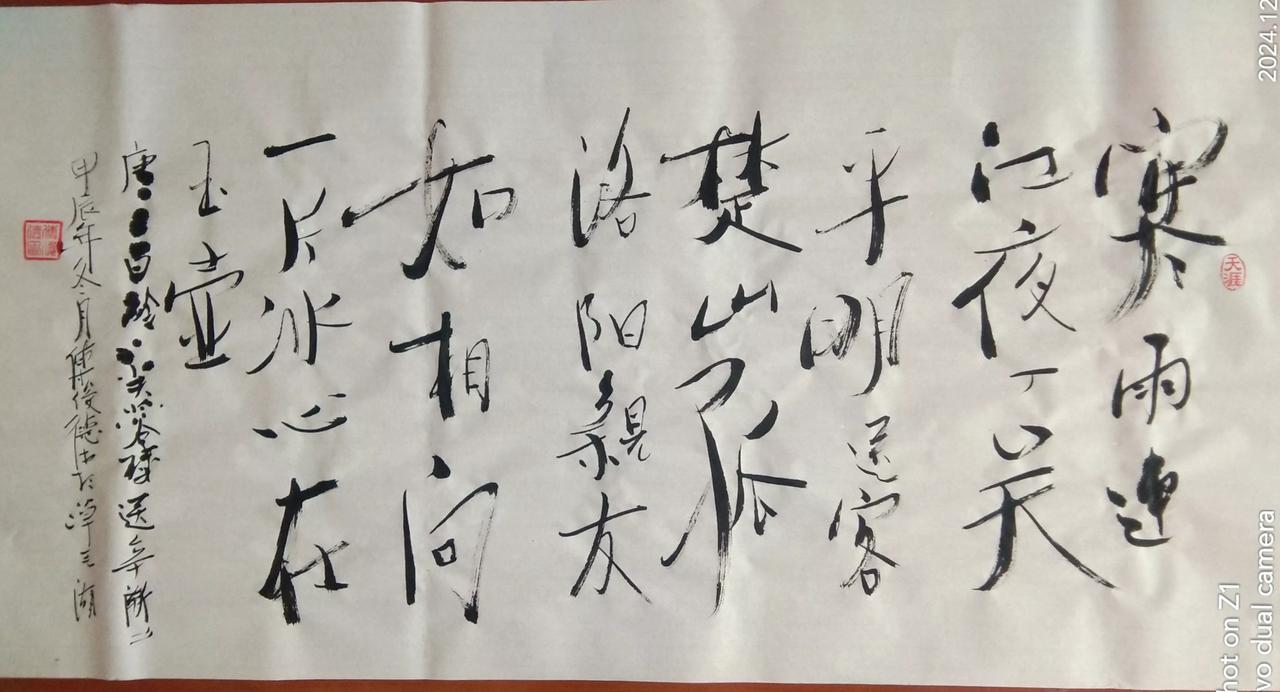 天涯
寒雨連
江夜吴
平明送客
楚山孤
洛阳親友
如相问
一片冰心在
玉壶
唐王昌龄芙蓉楼送辛渐
甲辰年冬月俊德书于
2024.12
hot on Z1
vo dual camera